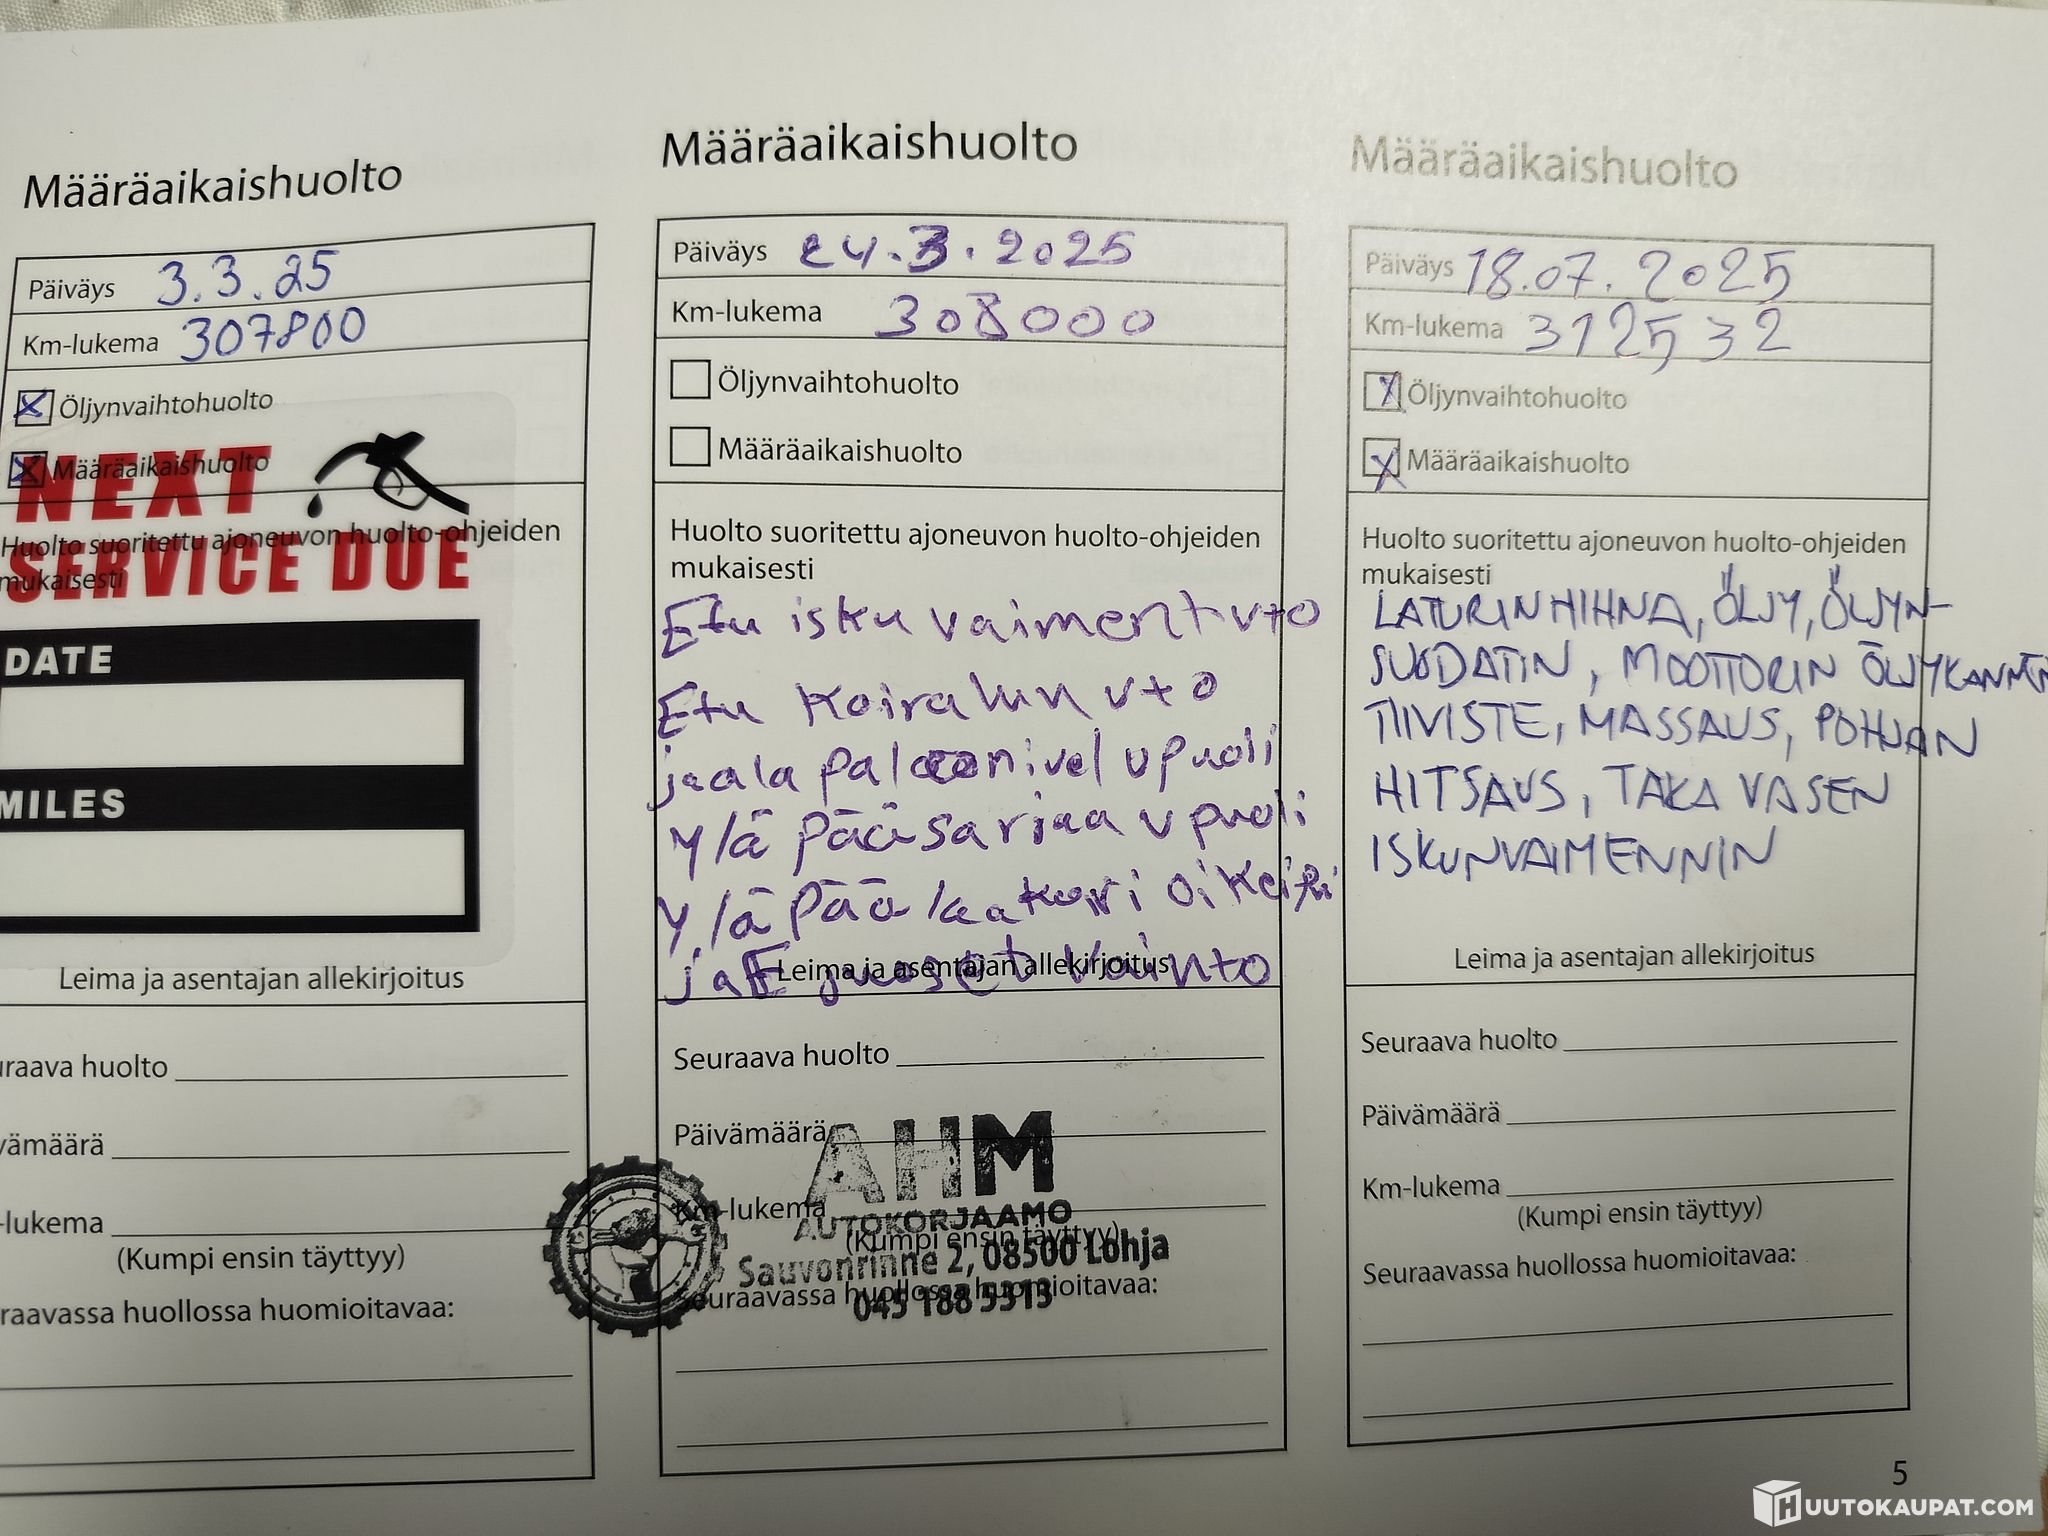 Määräaikaishuolto
Päiväys 3.3.25
Km-lukema 307800
Öljynvaihtohuolto
Määräaikaishuolto
NEXT
Huolto suoritettu ajoneuvon huolto-ohjeiden
mukaisesti
SERVICE DUE
DATE
MILES
Leima ja asentajan allekirjoitus
uraava huolto
vämäärä
-lukema
(Kumpi ensin täyttyy)
raavassa huollossa huomioitavaa:
Määräaikaishuolto
Päiväys 24.3.2025
Km-lukema 308000
Öljynvaihtohuolto
Määräaikaishuolto
Huolto suoritettu ajoneuvon huolto-ohjeiden
mukaisesti
Etu isku vaiment vto
Etu Koiraluun vto
ja ala pallonivel vpuoli
Ylä pää vpuoli
Ylä pää
Leima ja asentajan allekirjoitus
ja
Seuraava huolto
Päivämäärä
AHM
Km-lukema
AUTOKORJAAMO
(Kumpi ensin täyttyy)
Sauvonrinne 2, 08500 Lohja
Seuraavassa huollossa huomioitavaa:
045 188 5313
Määräaikaishuolto
Päiväys 18.07.2025
Km-lukema 312532
Öljynvaihtohuolto
Määräaikaishuolto
Huolto suoritettu ajoneuvon huolto-ohjeiden
mukaisesti
LATURIN HIHNA, ÖLJY, ÖLJYN-
SUODATIN, MOOTTORIN
TIIVISTE, MASSAUS, POHJAN
HITSAUS, TAKA VASEN
ISKUNVAIMENNIN
Leima ja asentajan allekirjoitus
Seuraava huolto
Päivämäärä
Km-lukema
(Kumpi ensin täyttyy)
Seuraavassa huollossa huomioitavaa:
5
HUUTOKAUPAT.COM